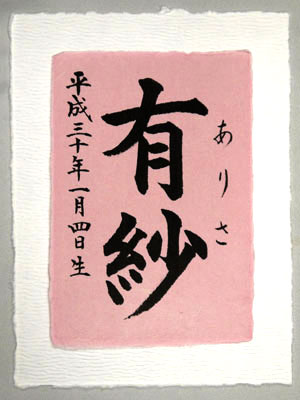 ありさ
有紗
平成三十年一月四日生